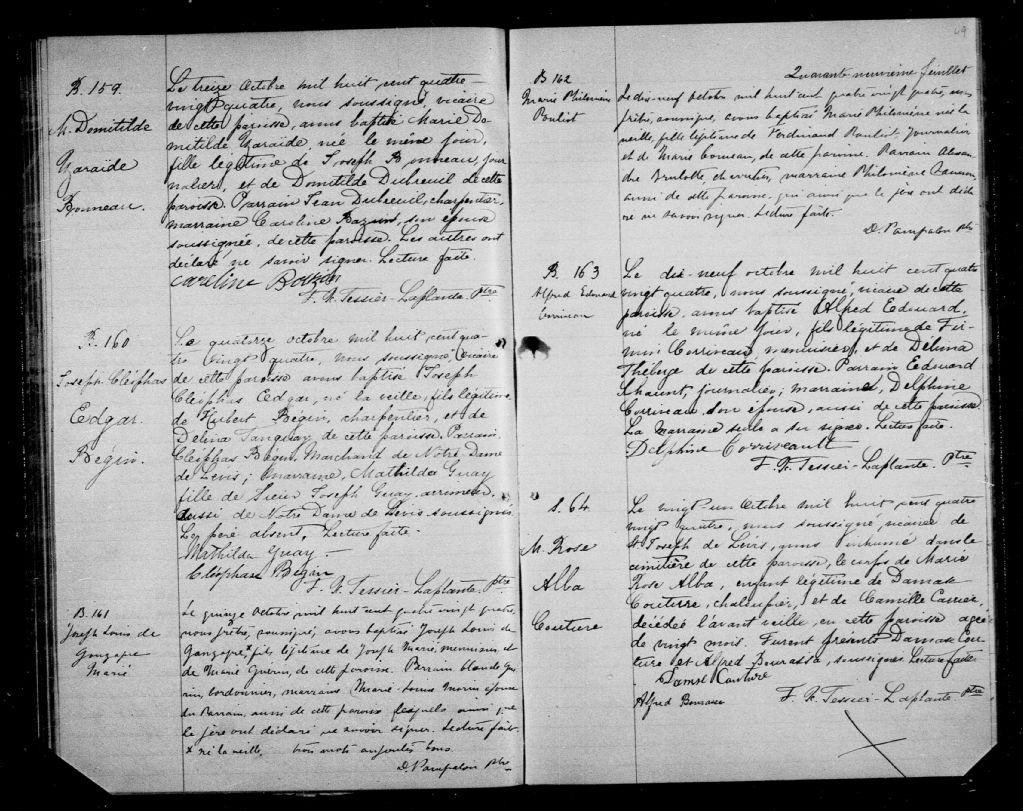 B. 159.
M. Domitilde
Zaraïde
Bonneau.
Le treize Octobre mil huit cent quatre-
vingt quatre, nous soussigné, vicaire
de cette paroisse, avons baptisé Marie Do
mitilde Zaraïde, née le même jour,
fille légitime de Joseph Bonneau, jour
nalier, et de Domitilde Dubreuil de cette
paroisse. Parrain Jean Dubreuil, charpentier,
marraine Caroline son épouse
soussignée, de cette paroisse. Les autres ont
déclaré ne savoir signer. Lecture faite.
Caroline
F. X. Tessier-Laplante. Ptre
B. 160
Joseph Cléophas
Edgar
Bégin.
Le quatorze octobre mil huit cent qua
tre vingt quatre, nous soussigné, vicaire
de cette paroisse avons baptisé Joseph
Cléophas Edgar, né la veille, fils légitime
de Hubert Bégin, charpentier, et de
Délina Tanguay de cette paroisse. Parrain,
Cléophas Bégin, Marchand de Notre Dame
de Lévis; marraine, Mathilda Guay
fille de Sieur Joseph Guay, arrimeur,
aussi de Notre Dame de Lévis soussignés
Le père absent, Lecture faite.
Mathilda Guay -
Cléophas Bégin
F. X. Tessier-Laplante, Ptre
B. 161
Joseph Louis de
Gonzague
Marié
Le quinze Octobre mil huit cent quatre vingt quatre,
nous prêtre, soussigné, avons baptisé Joseph Louis de
Gonzague x fils légitime de Joseph Marié, menuisier, et
de Marie Guérin, de cette paroisse. Parrain Gué
rin, cordonnier, marraine Marie Louise Morin épouse
du Parrain, aussi de cette paroisse lesquels ainsi que
le père ont déclaré ne savoir signer. Lecture faite.
x né la veille. trois mots ajoutés bons.
D. Pampalon Ptre
49
Quarante neuvième feuillet
B 162
Marie Philomène
Pouliot
Le dix-neuf octobre mil huit cent quatre vingt quatre, nous
prêtre, soussigné, avons baptisé Marie Philomène née la
veille, fille légitime de Ferdinand Pouliot Journalier
et de Marie de cette paroisse. Parrain Alexan
dre Brulotte charretier, marraine Philomène
aussi de cette paroisse, qui ainsi que le père ont décla
ré ne savoir signer. Lecture faite.
D. Pampalon Ptre
B. 163
Alfred Edouard
Corriveau
Le dix-neuf octobre mil huit cent quatre
vingt quatre, nous soussigné, vicaire de cette
paroisse, avons baptisé Alfred Edouard,
né le même jour, fils légitime de Fir-
min Corriveau, menuisier, et de Délima
Théberge de cette paroisse. Parrain Edouard
journalier; marraine, Delphine
Corriveau son épouse, aussi de cette paroisse
La marraine seule a su signer. Lecture faite.
Delphine Corriveault
F. X. Tessier-Laplante. Ptre
S. 64
M. Rose
Alba
Couture
Le vingt un Octobre mil huit cent quatre
vingt quatre, nous soussigné, vicaire de
St Joseph de Lévis, avons inhumé dans le
cimitière de cette paroisse, le corps de Marie
Rose Alba, enfant légitime de Damase
Couture, chaloupier, et de Camille Carrier,
décédée l'avant veille, en cette paroisse agée
de vingt mois. Furent présents Damase Cou
ture et Alfred Bourassa, soussignés Lecture faite
Damase Couture
Alfred Bourassa
F. X. Tessier-Laplante. Ptre